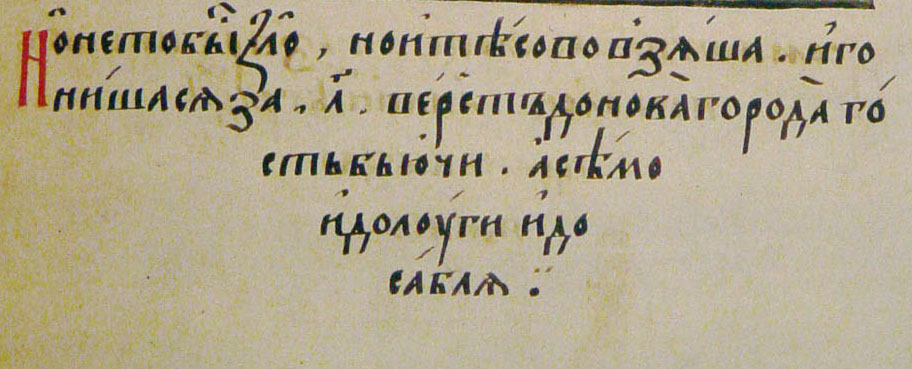 Нонетобы́ⷭ зло , ноитѣ́сово взѧ́ша . и҆го
ни́шасѧза . л҃ . ве́рстъдоноваго́рода го́
стьбьючи . а҆сѣ́мо
и҆долоу́ги и҆до
са́блѧ ⁖